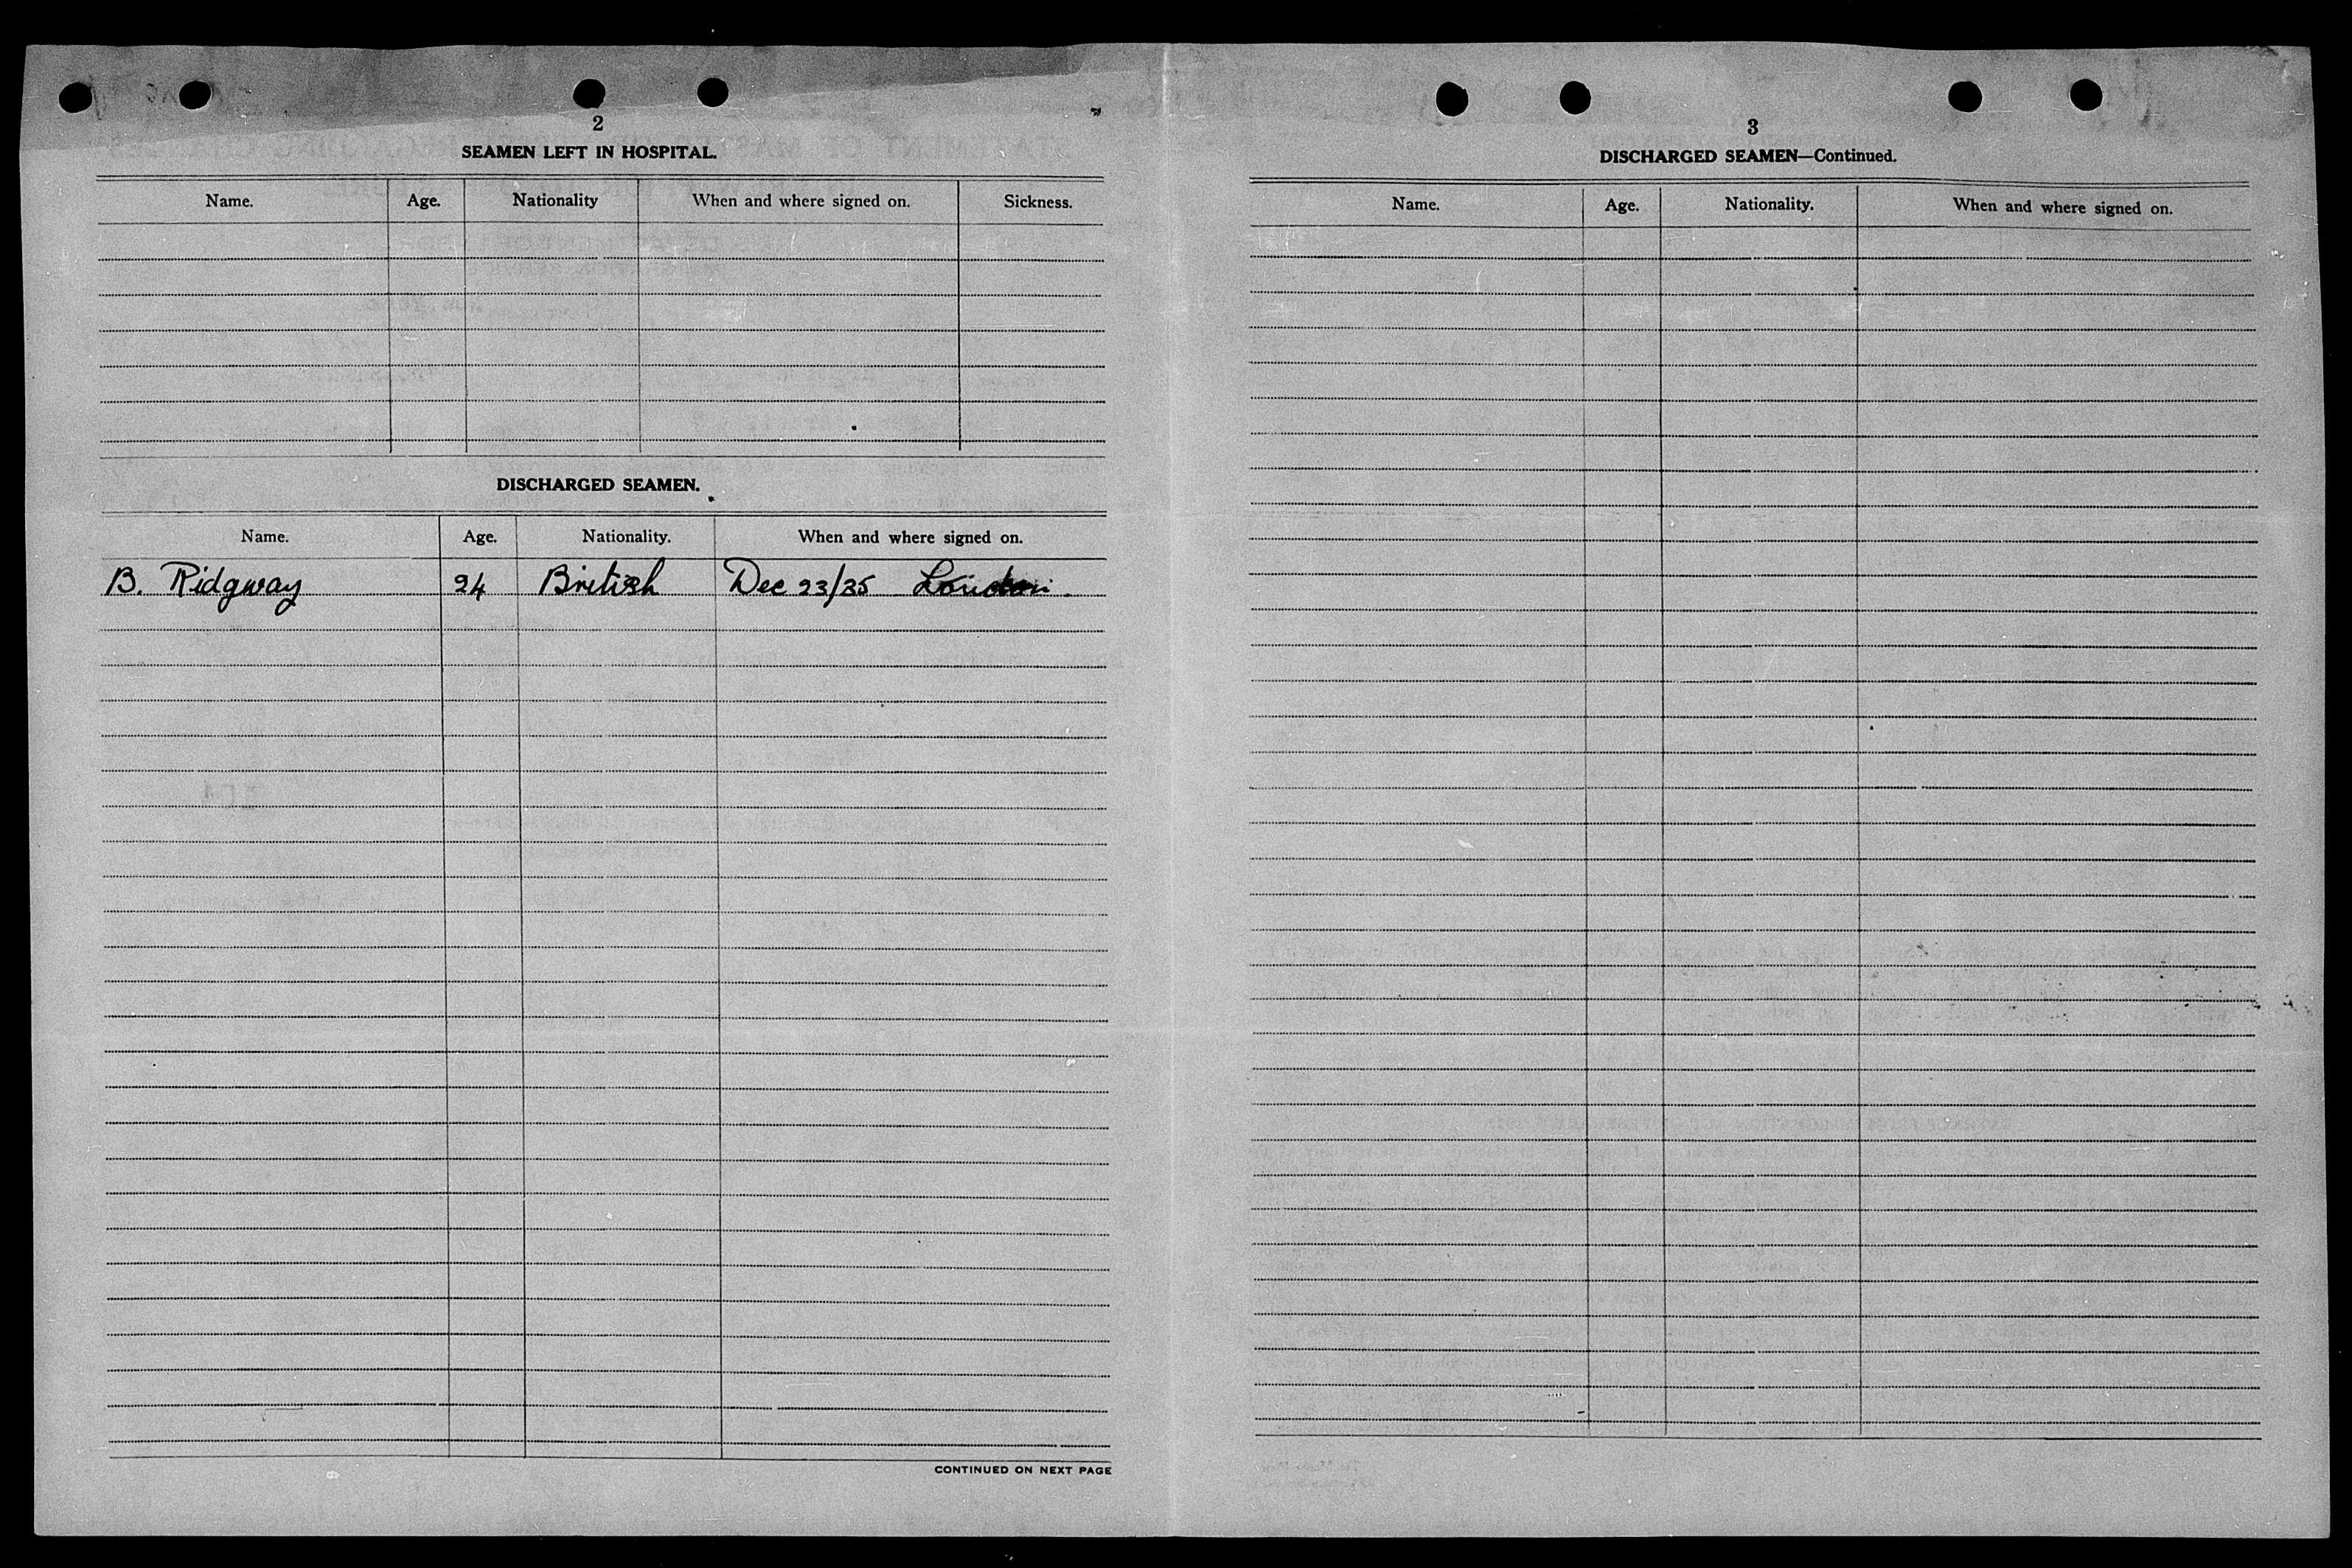 2
SEAMEN LEFT IN HOSPITAL.
Name. Age. Nationality When and where signed on. Sickness.
DISCHARGED SEAMEN.
Name. Age. Nationality. When and where signed on.
B. Ridgway 24 British Dec 23/35 London.
CONTINUED ON NEXT PAGE
3
DISCHARGED SEAMEN—Continued.
Name. Age. Nationality. When and where signed on.